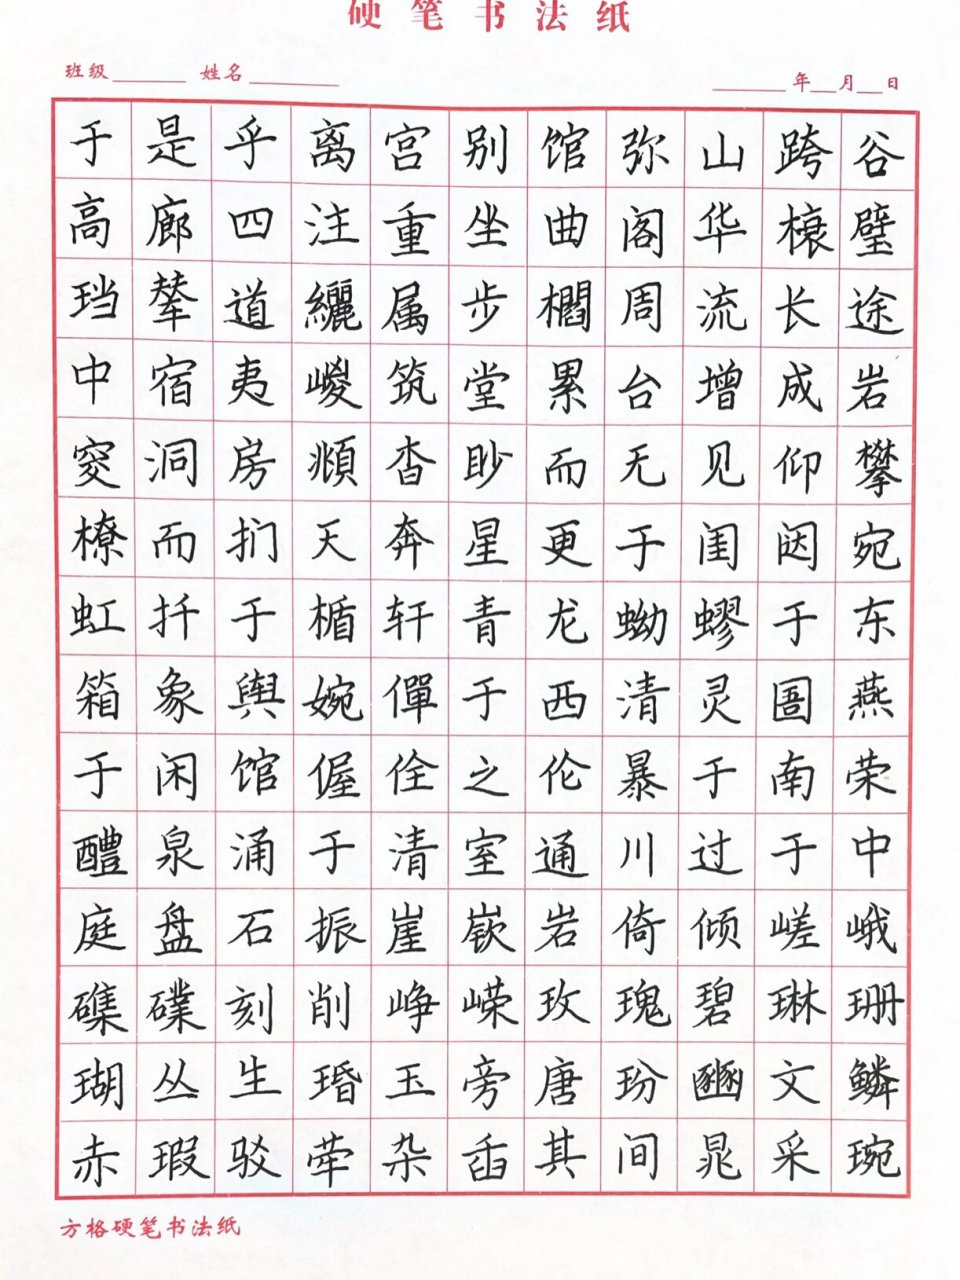 硬笔书法纸
班级 姓名 年 月 日
于是乎离宫别馆弥山跨谷
高廊四注重坐曲阁华榱璧
珰辇道纚属步櫩周流长途
中宿夷嵕筑堂累台增成岩
窔洞房頫杳眇而无见仰攀
橑而扪天奔星更于闺闼宛
虹扦于楯轩青龙蚴蟉于东
箱象舆婉僤于西清灵圄燕
于闲馆偓佺之伦暴于南荣
醴泉涌于清室通川过于中
庭盘石振崖嵚岩倚倾嵯峨
磼礏刻削峥嵘玫瑰碧琳珊
瑚丛生瑉玉旁唐玢豳文鳞
赤瑕驳荦杂臿其间晁采琬
方格硬笔书法纸